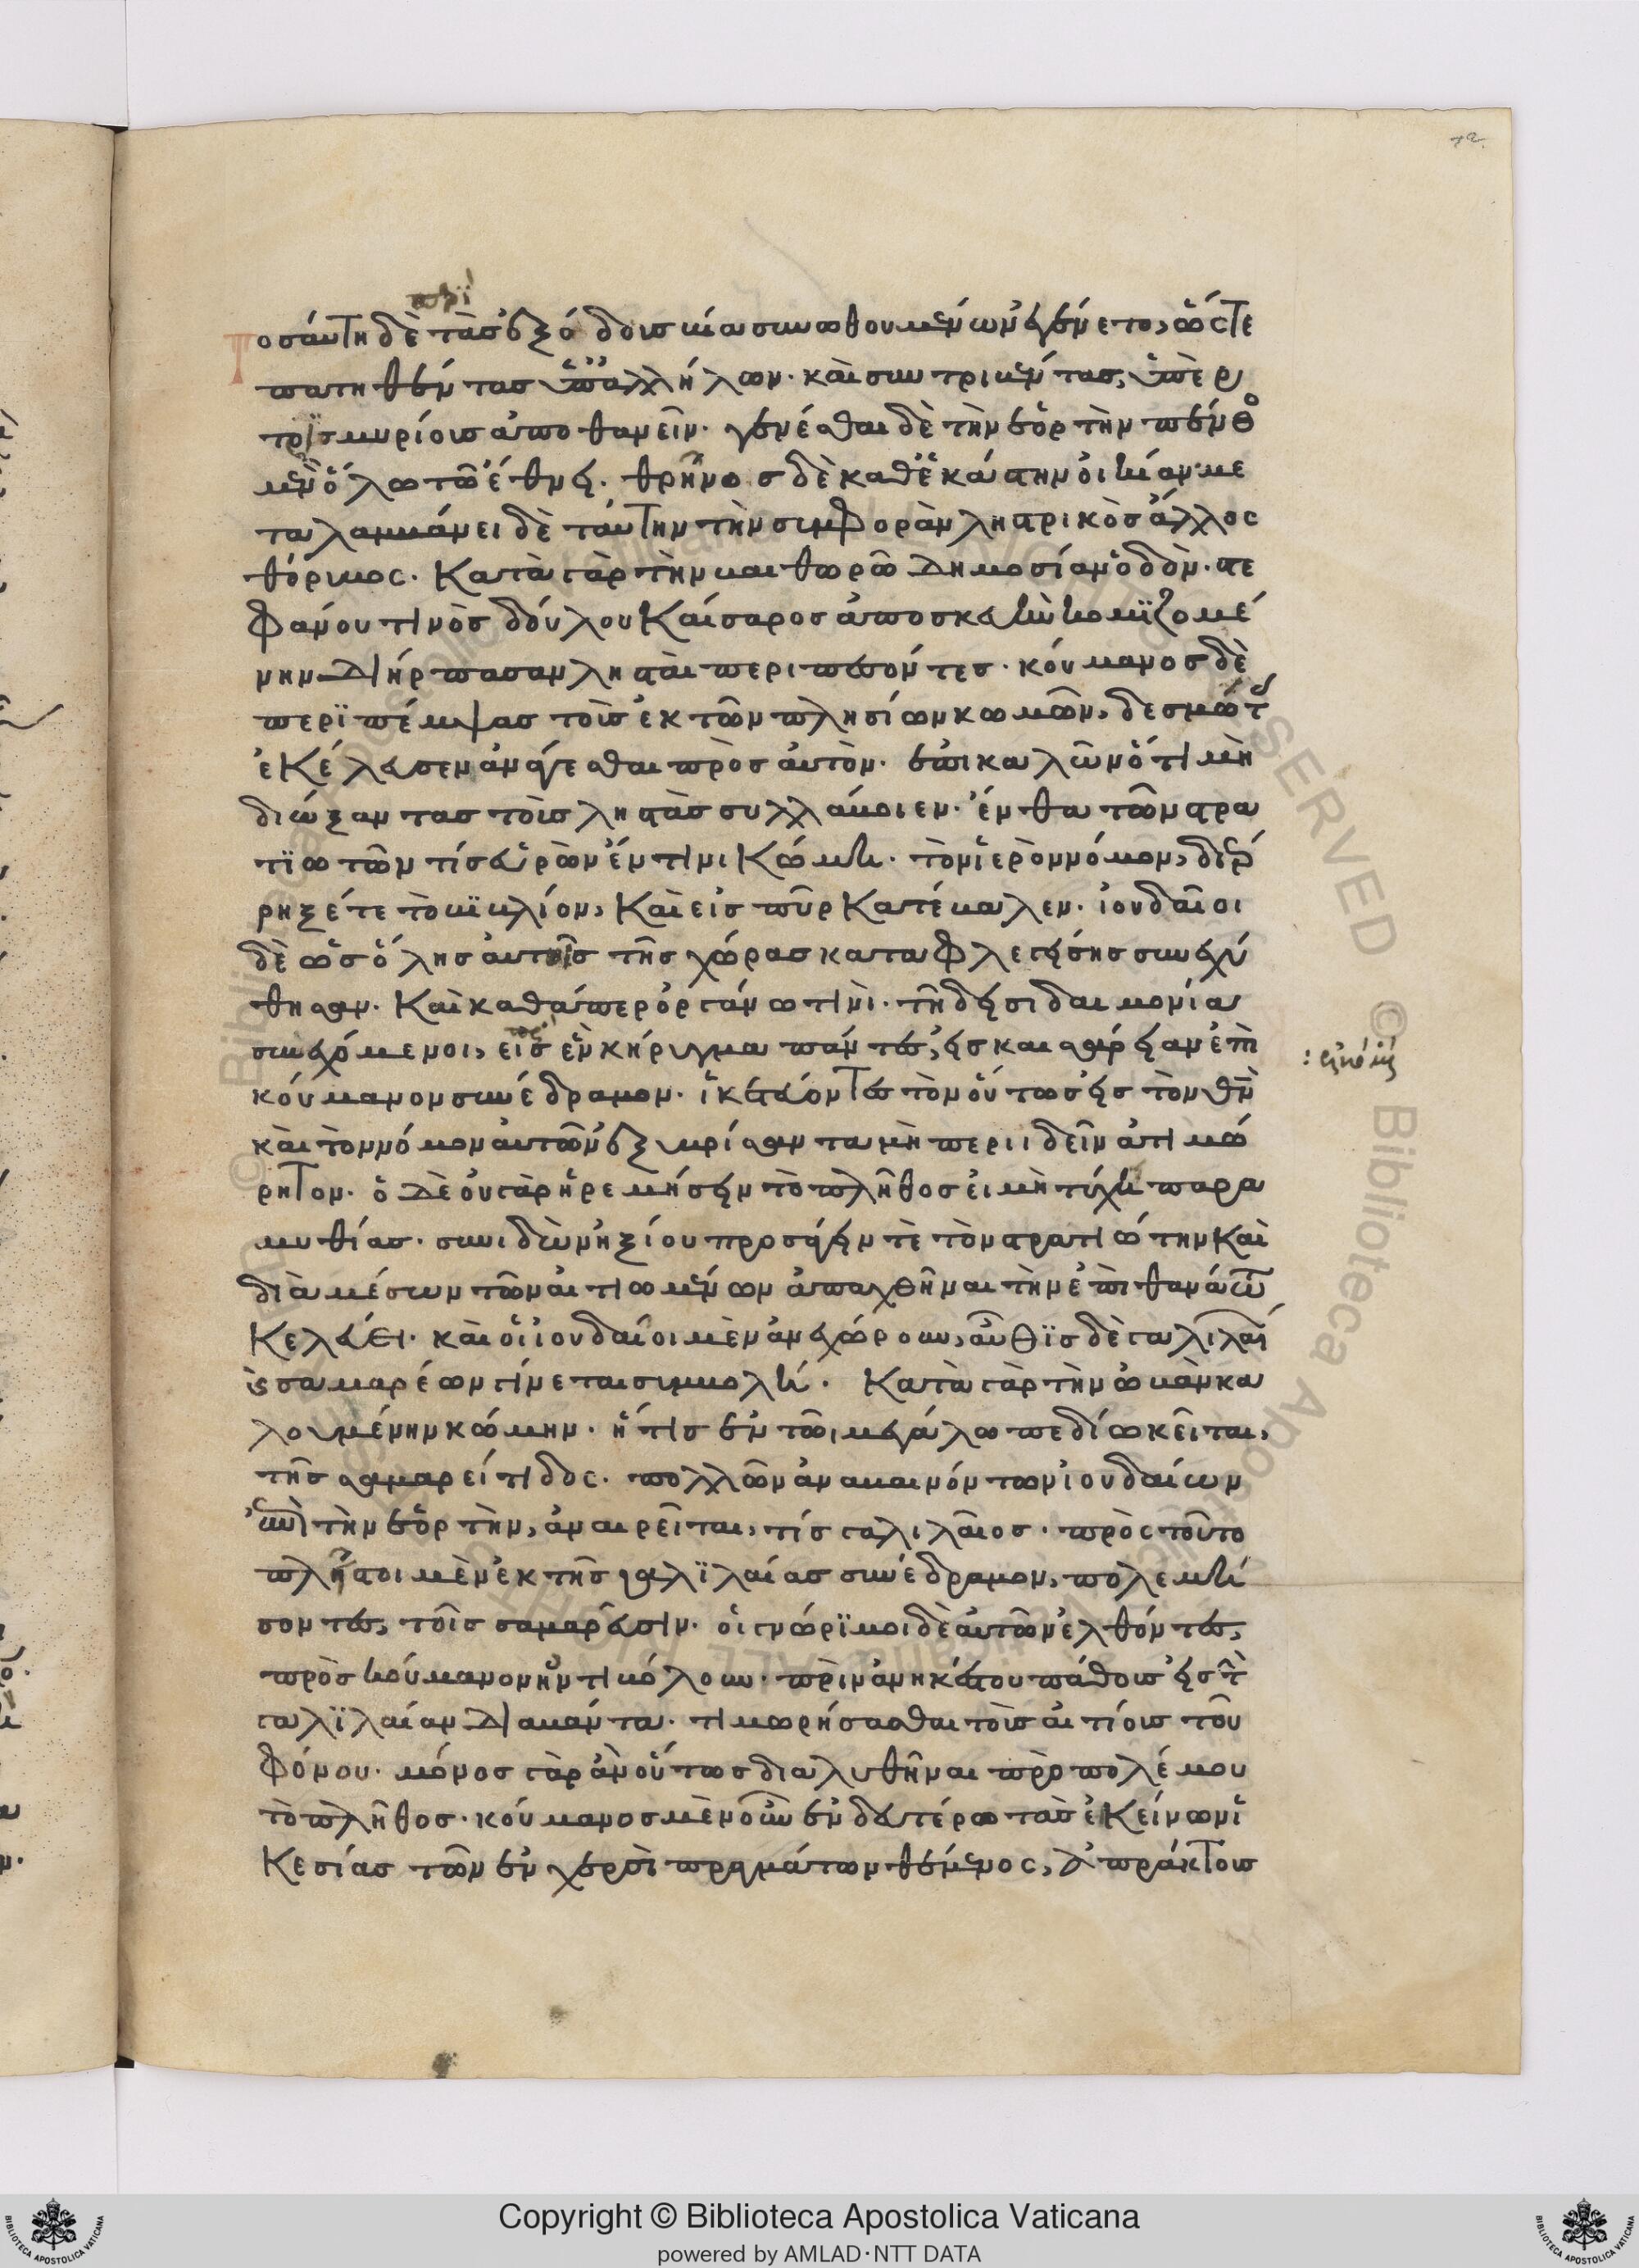 περὶ
Τοσάυτη δὲ τὰσ ἐξόδουσ βία συνωθουμένων ἐγένετο, ὥστε
πατηθέντασ ὑπ' ἀλλήλων. καὶ συντριβέντας, ὑπὲρ
τρϊσμυρίουσ ἀποθανεῖν. γενέσθαι δὲ τὴν ἑορτὴν πένθο
μὲν ὅλω τῶ ἔθνει. θρῆνοσ δὲ καθ' ἑκάστην οἰκίαν· με
ταλαμβάνει δὲ τάυτην τὴν συμφορὰν ληστρικὸσ ἄλλος
θόρυβος. Κατὰ γὰρ τὴν βαιθωρῶ δημοσίαν ὁδὸν. στε
φάνου τινὸσ δούλου Καίσαροσ ἀποσκευὴν κομϊζομέ
νην διήρπασαν λησταὶ περιπεσόντεσ. κούμανοσ δὲ
περϊπέμψασ τοὺσ ἐκ τῶν πλησίων κωμῶν, δεσμώτ
ἐκέλευσεν ἀνάγεσθαι πρὸσ αὐτὸν. ἐπικαλῶν ὅτι μὴ
διώξαντασ τοὺσ ληστὰσ συλλάβοιεν. ἔνθα τῶν στρα
τϊωτῶν τίσ εὑρὼν ἔν τινι Κώμη. τὸν ἱερὸν νόμον, διέρ
ρηξέ τε τὸ βϊβλίον, Καὶ εἰσ πῦρ Κατέβαλεν. ἰουδαῖοι
δὲ ὡσ ὅλησ ἀυτοῖσ τῆσ χώρασ καταφλεγείσησ συνεχύ
θησαν. Καὶ καθάπερ ὀργάνω τινὶ. τῆ δεισιδαιμονία
συνεχόμενοι, εἰσ ἓν κήρυγμα πάντες, εἰσ καισάρειαν ἐπὶ
: εἰκόνι
κούμανον συνέδραμον. ἱκετεύοντες τὸν οὕτωσ εἰσ τὸν θν
καὶ τὸν νόμον ἀυτῶν ἐξυβρίσαντα μὴ περιιδεῖν ἀτιμώ
ρητον. ὁ Δὲ ὀυ γὰρ ἠρέμησεν τὸ πλῆθοσ εἰ μὴ τύχη παρα
μυθίασ. συνιδὼν ἠξίου προσάγειν τὲ τὸν στρατιώτην Καὶ
διὰ μέσων τῶν ἀιτιωμένων ἀπαχθῆναι τὴν ἐπὶ θανάτω
Κελεύει. καὶ οἱ ἰουδαίοι μὲν ἀνεχώρουν, ἀῦθϊσ δὲ γαλιλαί
εἰσ σαμαρέων γίνεται συμβολή. Κατὰ γὰρ τὴν ὡμὰν κα
λουμένην κώμην. ἥτισ ἐν τῶι μεγάλω πεδίω κεῖται,
τῆσ σαμαρείτιδος. πολλῶν ἀναβαινόντων ἰουδαίων
ἐπὶ τὴν ἑορτὴν, ἀναιρεῖται, τίσ γαλιλαῖοσ. πρὸς τοῦτο
πλῆστοι μὲν ἐκ τῆσ γαλϊλαίασ συνέδραμον, πολεμή
σοντες, τοῖσ σαμαρεῦσιν. οἱ γνώρϊμοι δὲ ἀυτῶν ἐλθόντες,
πρὸσ κούμανον ἠντιβόλουν. πρὶν ἀνηκέστου πάθουσ εἰσ τὴ
γαλϊλαίαν διαβάντα. τιμωρήσασθαι τοὺσ ἀιτίουσ τοῦ
φόνου. μόνοσ γὰρ ἀν οὕτωσ διαλυθῆναι πρὸ πολέμου
τὸ πλῆθοσ. κούμανοσ μὲν οῦν ἐν δευτέρω τὰσ ἐκείνων ἱ
Κεσίασ τῶν ἐν χερσὶ πραγμάτων θέμενος, ἀπράκτουσ
Copyright © Biblioteca Apostolica Vaticana
powered by AMLAD·NTT DATA